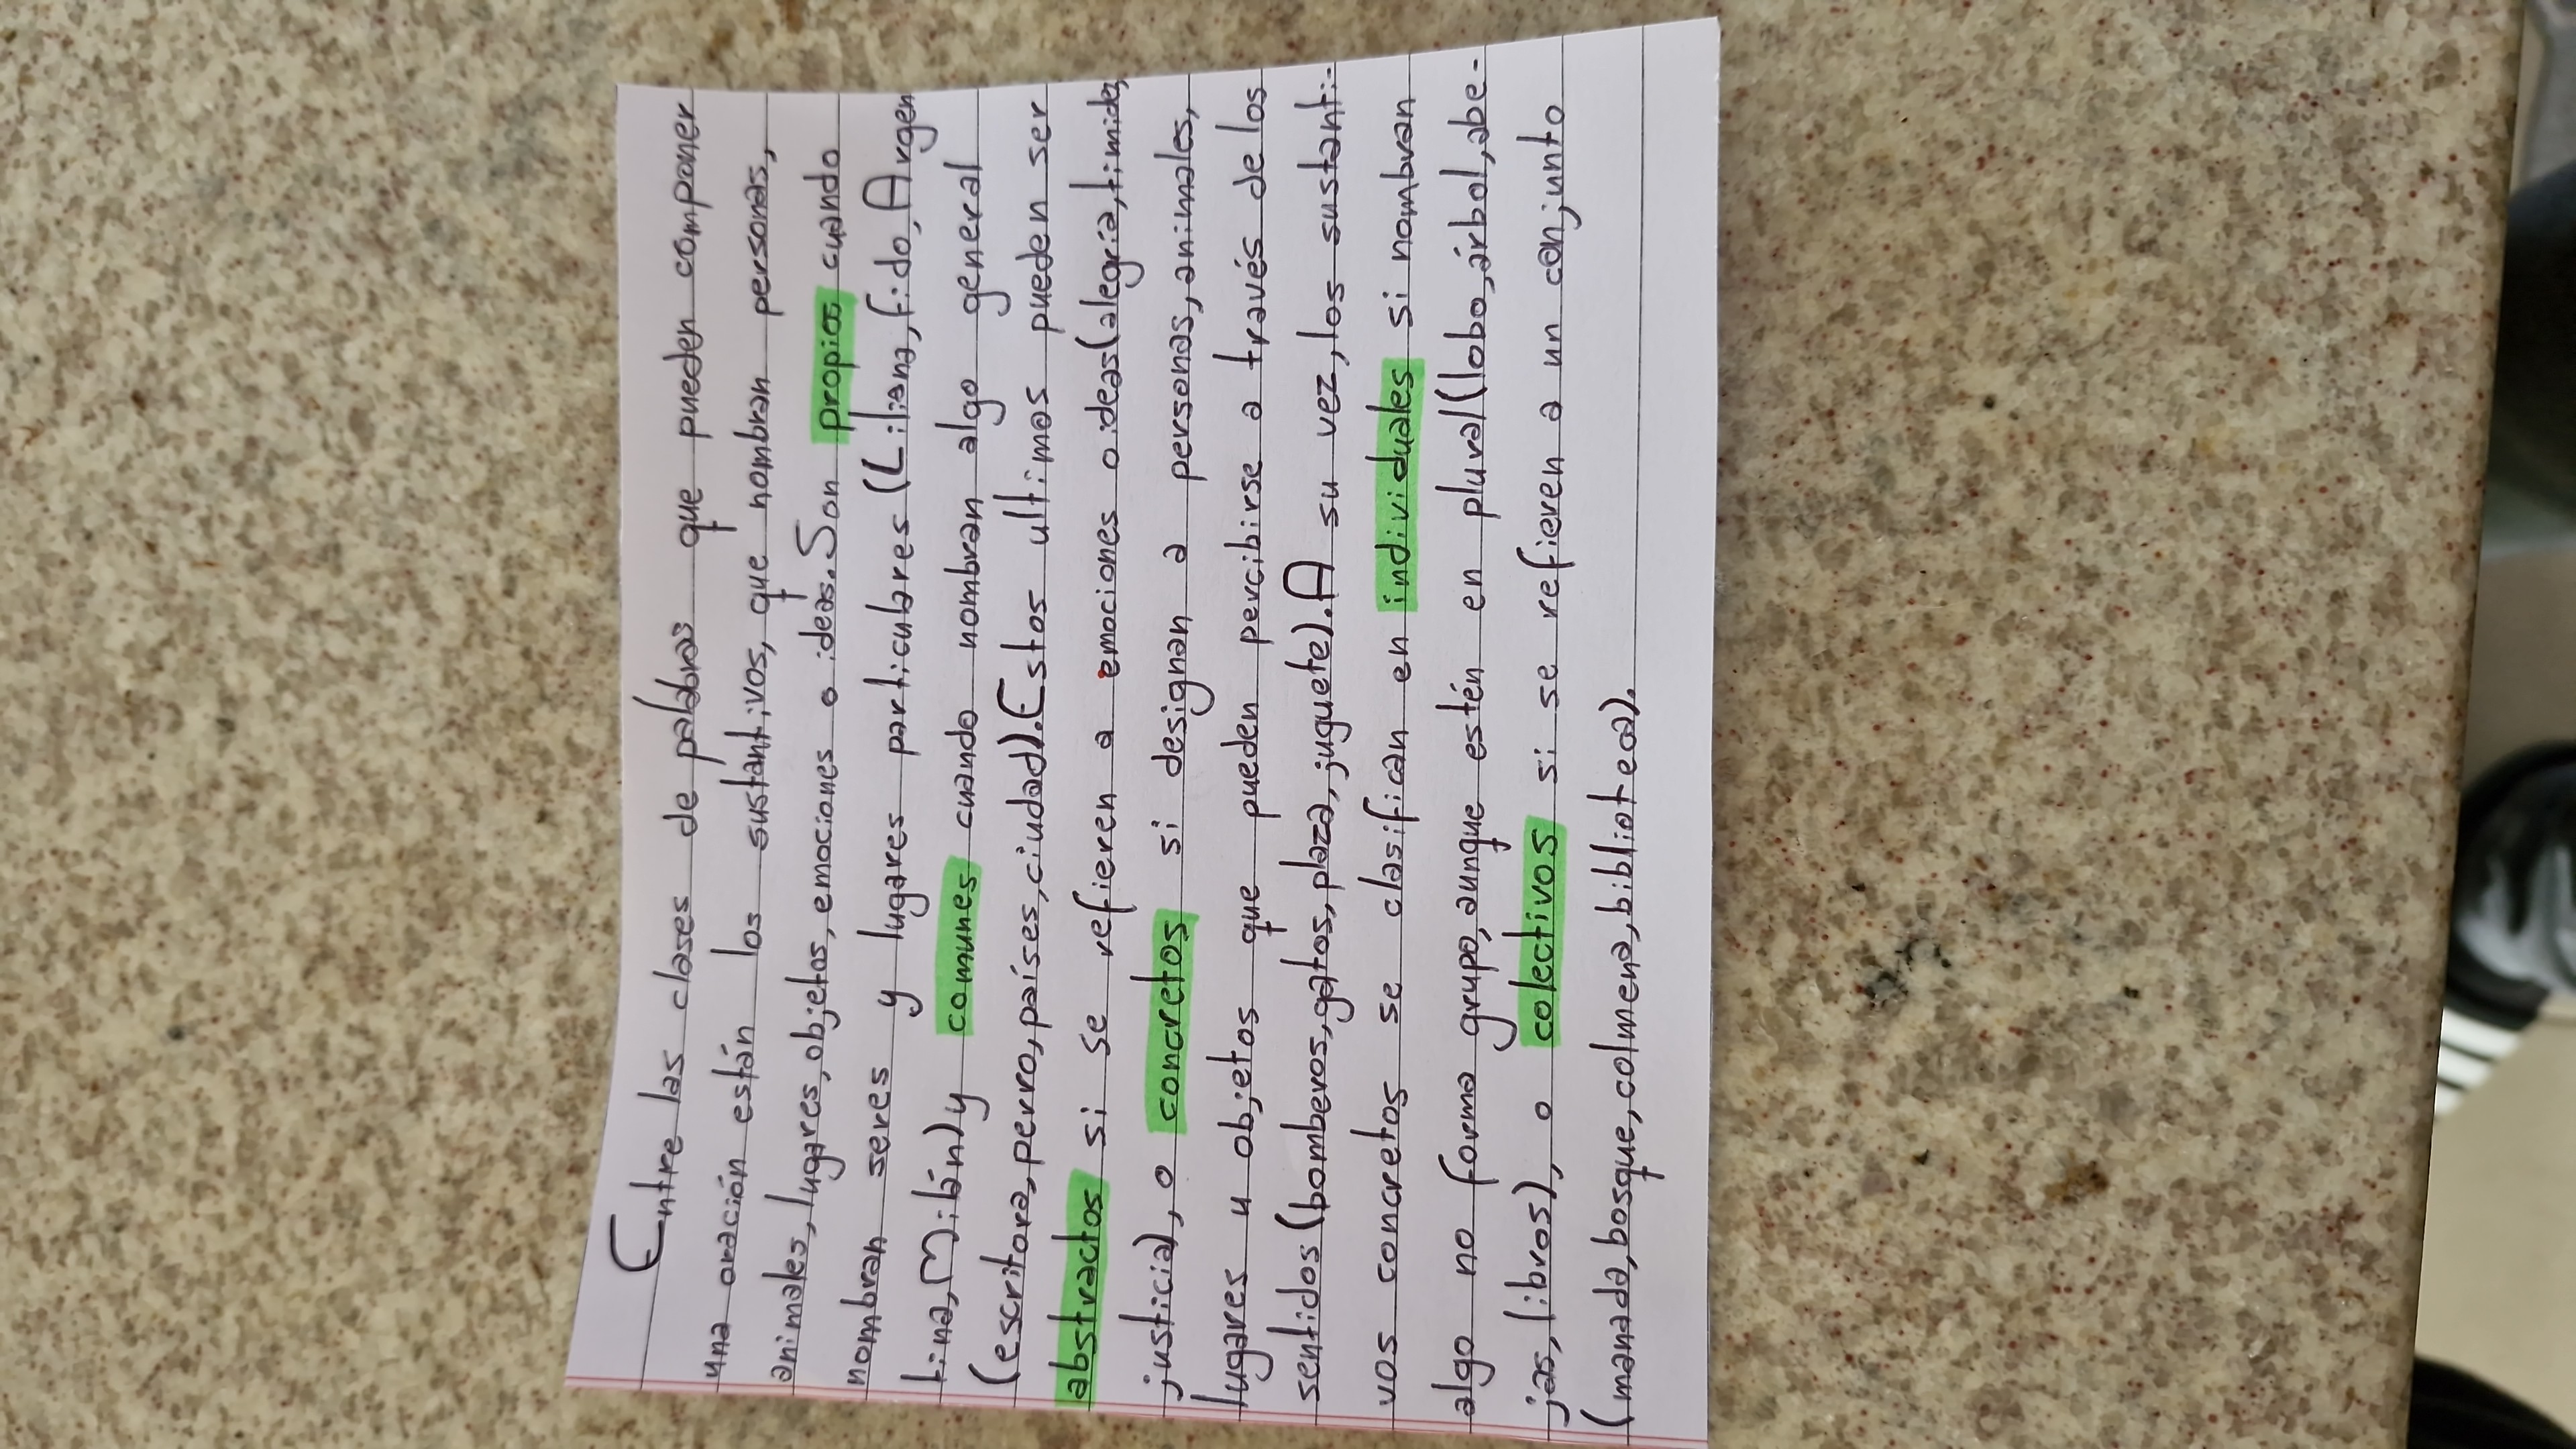 Entre las clases de palabras que pueden componer
una oración están los sustantivos, que nombran personas,
animales, lugares, objetos, emociones o ideas. Son propios cuando
nombran seres y lugares particulares (Liliana, fido, Argen
tina, Milán) y comunes cuando nombran algo general
(escritora, perro, países, ciudad). Estos ultimos pueden ser
abstractos si se refieren a emociones o ideas (alegría, timidez,
justicia), o concretos si designan a personas, animales,
lugares u objetos que pueden percibirse a través de los
sentidos (bomberos, gatos, plaza, juguete). A su vez, los sustanti-
vos concretos se clasifican en individuales si nombran
algo no forma grupo, aunque estén en plural (lobo, árbol, abe-
jas, libros), o colectivos si se refieren a un conjunto
(manada, bosque, colmena, biblioteca).